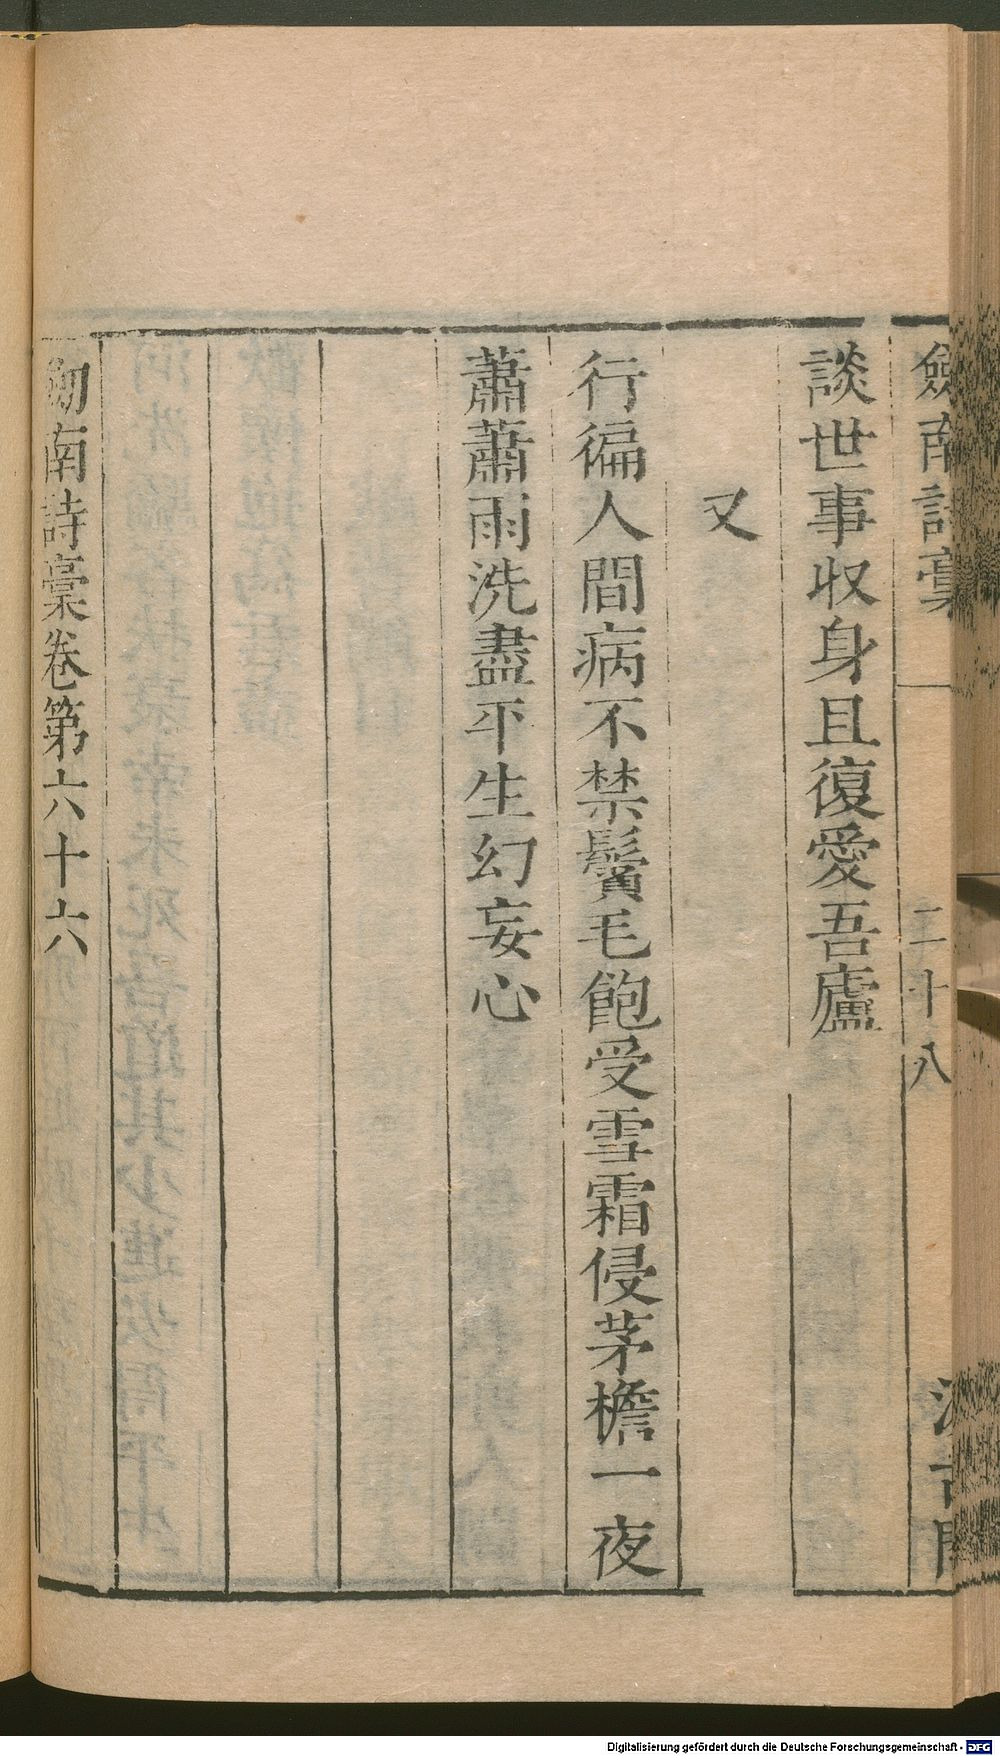 劎南詩稾 二十八 汲古閣
談世事収身且復愛吾廬
又
行徧人間病不禁鬢毛飽受雪霜侵茅檐一夜
蕭蕭雨洗盡平生幻妄心
劎南詩稾卷第六十六
Digitalisierung gefördert durch die Deutsche Forschungsgemeinschaft - DFG